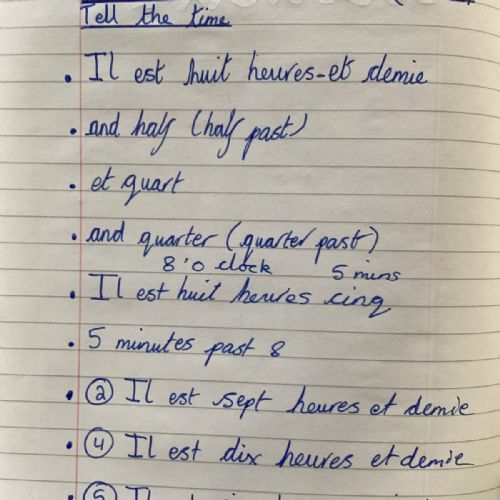 Tell the time
• Il est huit heures-et demie
• and half (half past)
• et quart
• and quarter (quarter past)
8'o clock 5 mins
• Il est huit heures cinq
• 5 minutes past 8
• ② Il est sept heures et demie
• ④ Il est dix heures et demie
• ⑤ Il